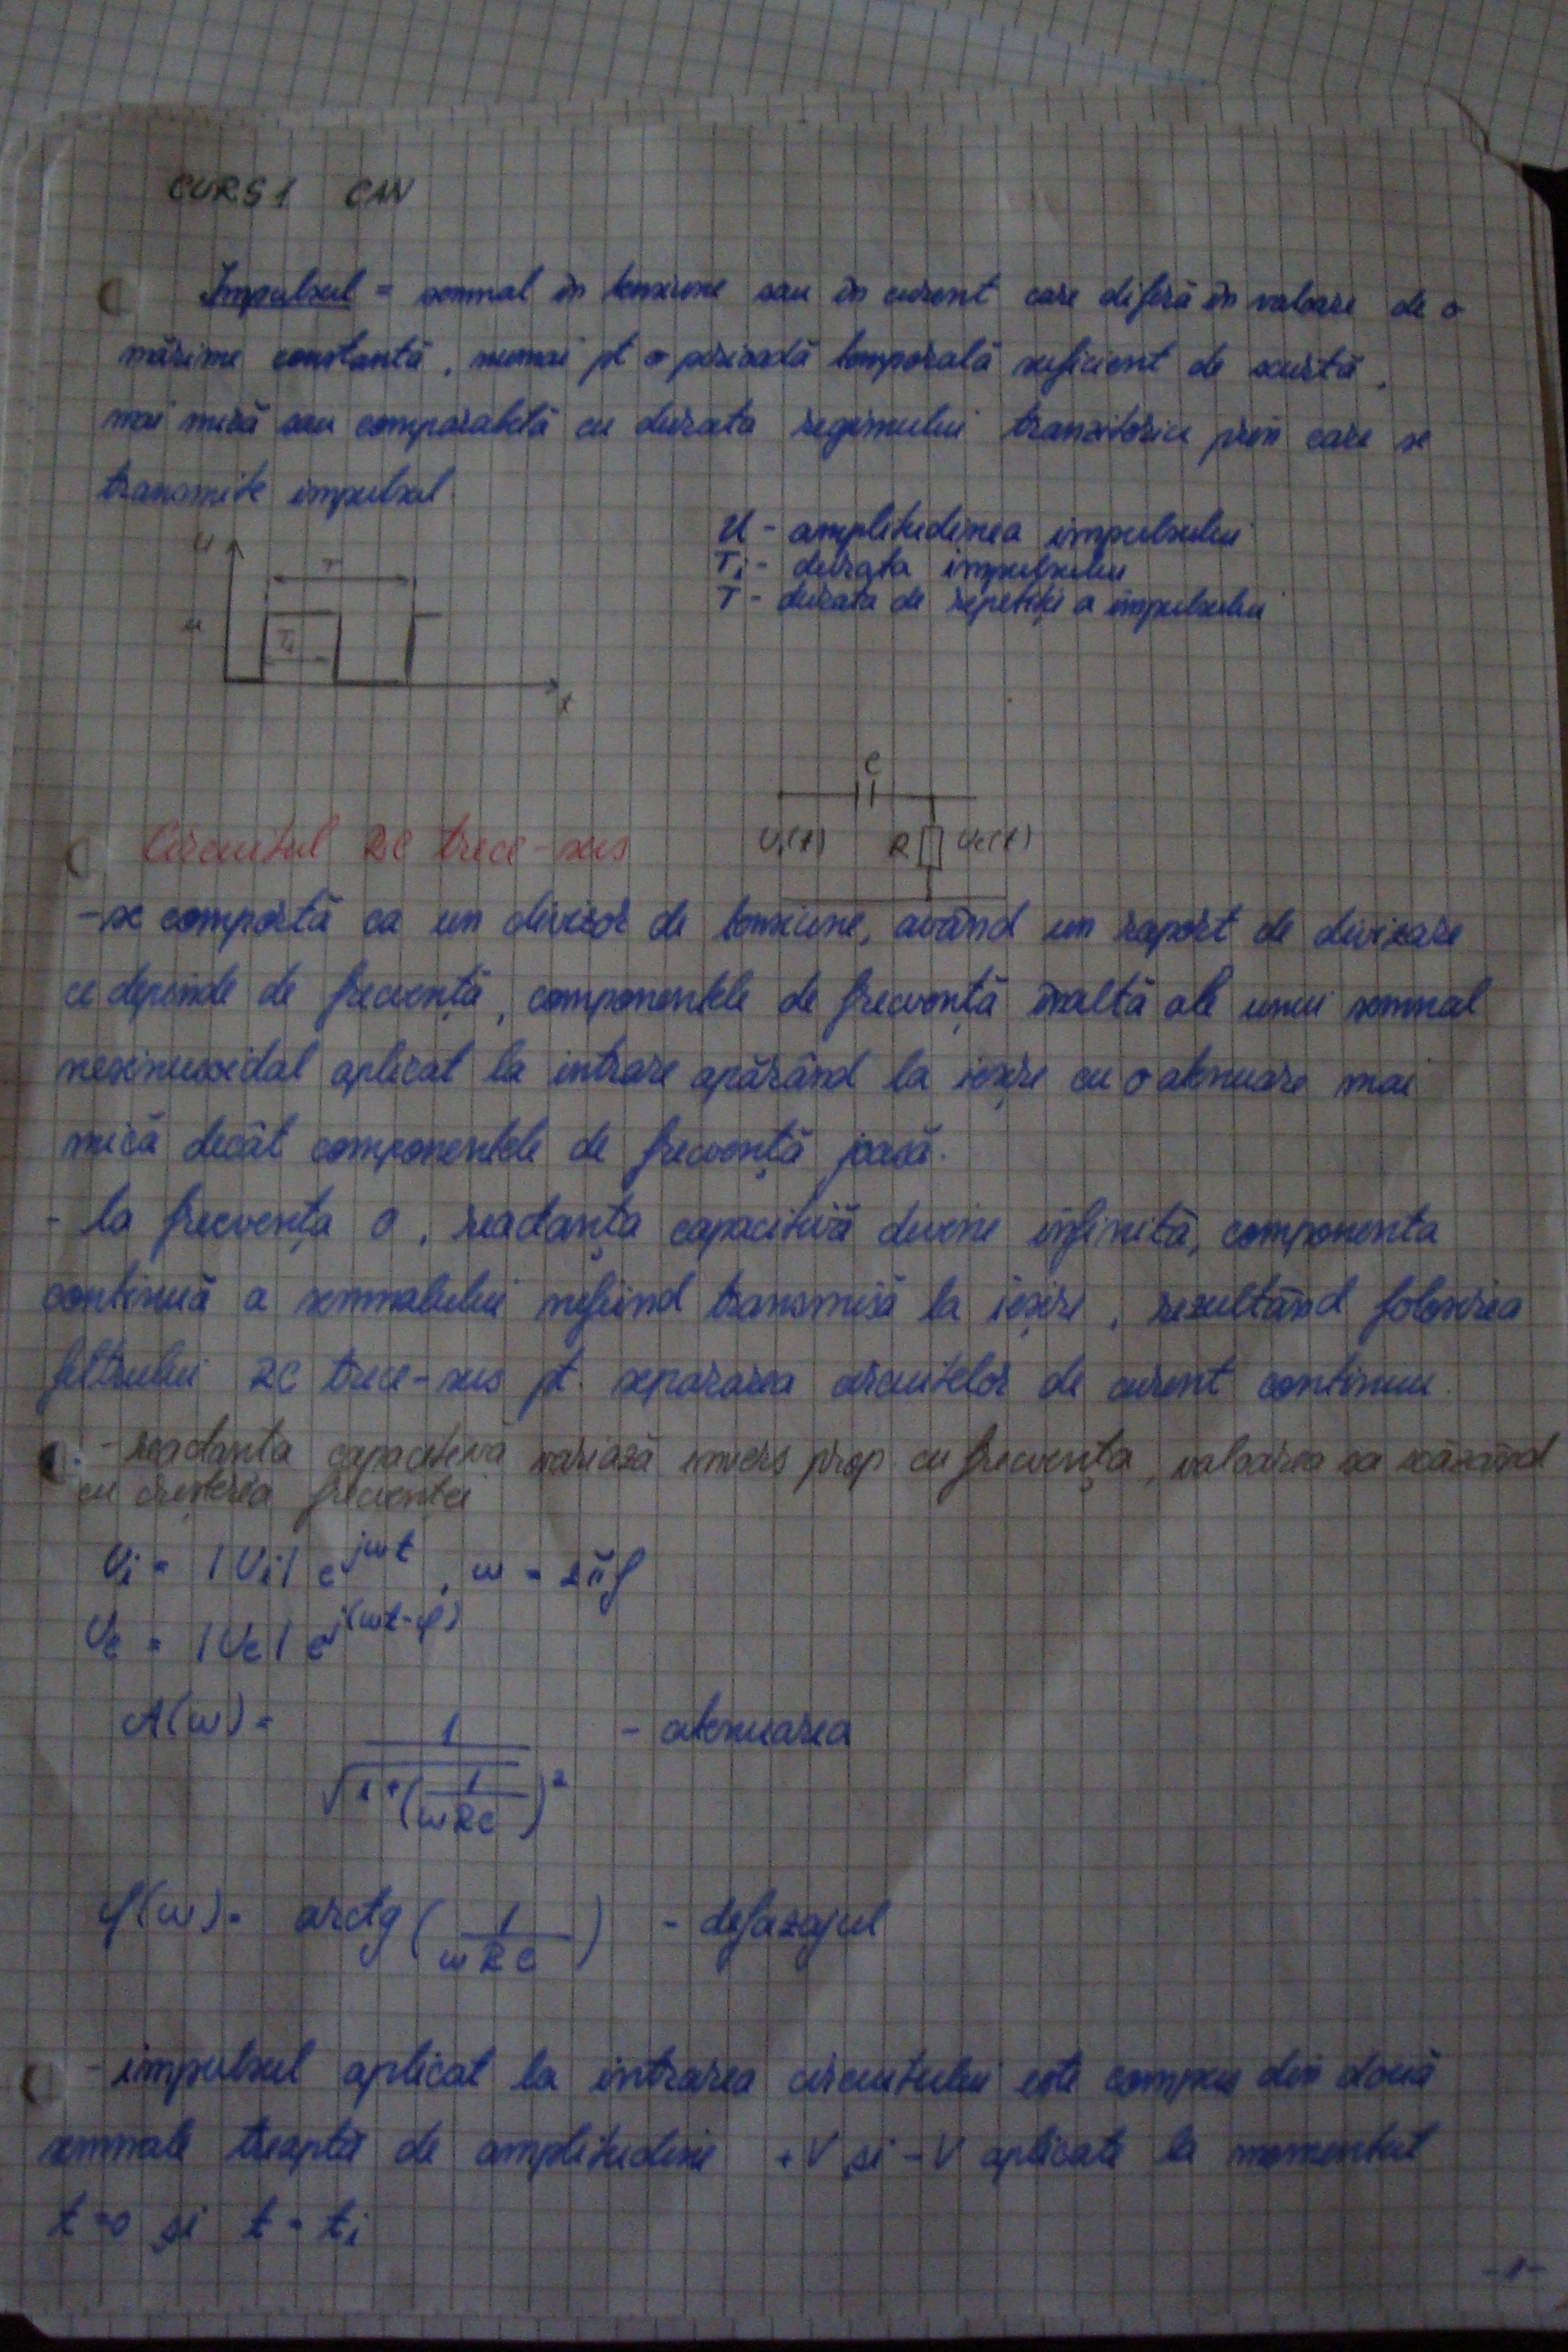 CURS 1 CAN
Impulsul = semnal în tensiune sau în curent care diferă în valoare de o
mărime constantă, numai pt o perioadă temporală suficient de scurtă,
mai mică sau comparabilă cu durata regimului tranzitoriu prin care se
transmite impulsul.
U - amplitudinea impulsului
Ti - durata impulsului
T - durata de repetiție a impulsului
u
T
u
Ti
t
C
Ui(t) R Ue(t)
Circuitul RC trece-sus
- se comportă ca un divizor de tensiune, având un raport de divizare
ce depinde de frecvență, componentele de frecvență înaltă ale unui semnal
nesinusoidal aplicat la intrare apărând la ieșire cu o atenuare mai
mică decât componentele de frecvență joasă.
- la frecvența 0, reactanța capacitivă devine infinită, componenta
continuă a semnalului nefiind transmisă la ieșire, rezultând folosirea
filtrului RC trece-sus pt. separarea circuitelor de curent continuu.
- reactanta capacitiva variază invers prop cu frecvența, valoarea sa scăzând
cu creșterea frecventei
Ui = |Ui| e^jωt, ω = 2πf
Ue = |Ue| e^j(ωt-φ)
A(ω) = 1 / √(1+(1/ωRC)²) - atenuarea
φ(ω) = arctg (1/ωRC) - defazajul
- impulsul aplicat la intrarea circuitului este compus din două
semnale treaptă de amplitudine +V și -V aplicate la momentul
t=0 și t=ti
-1-